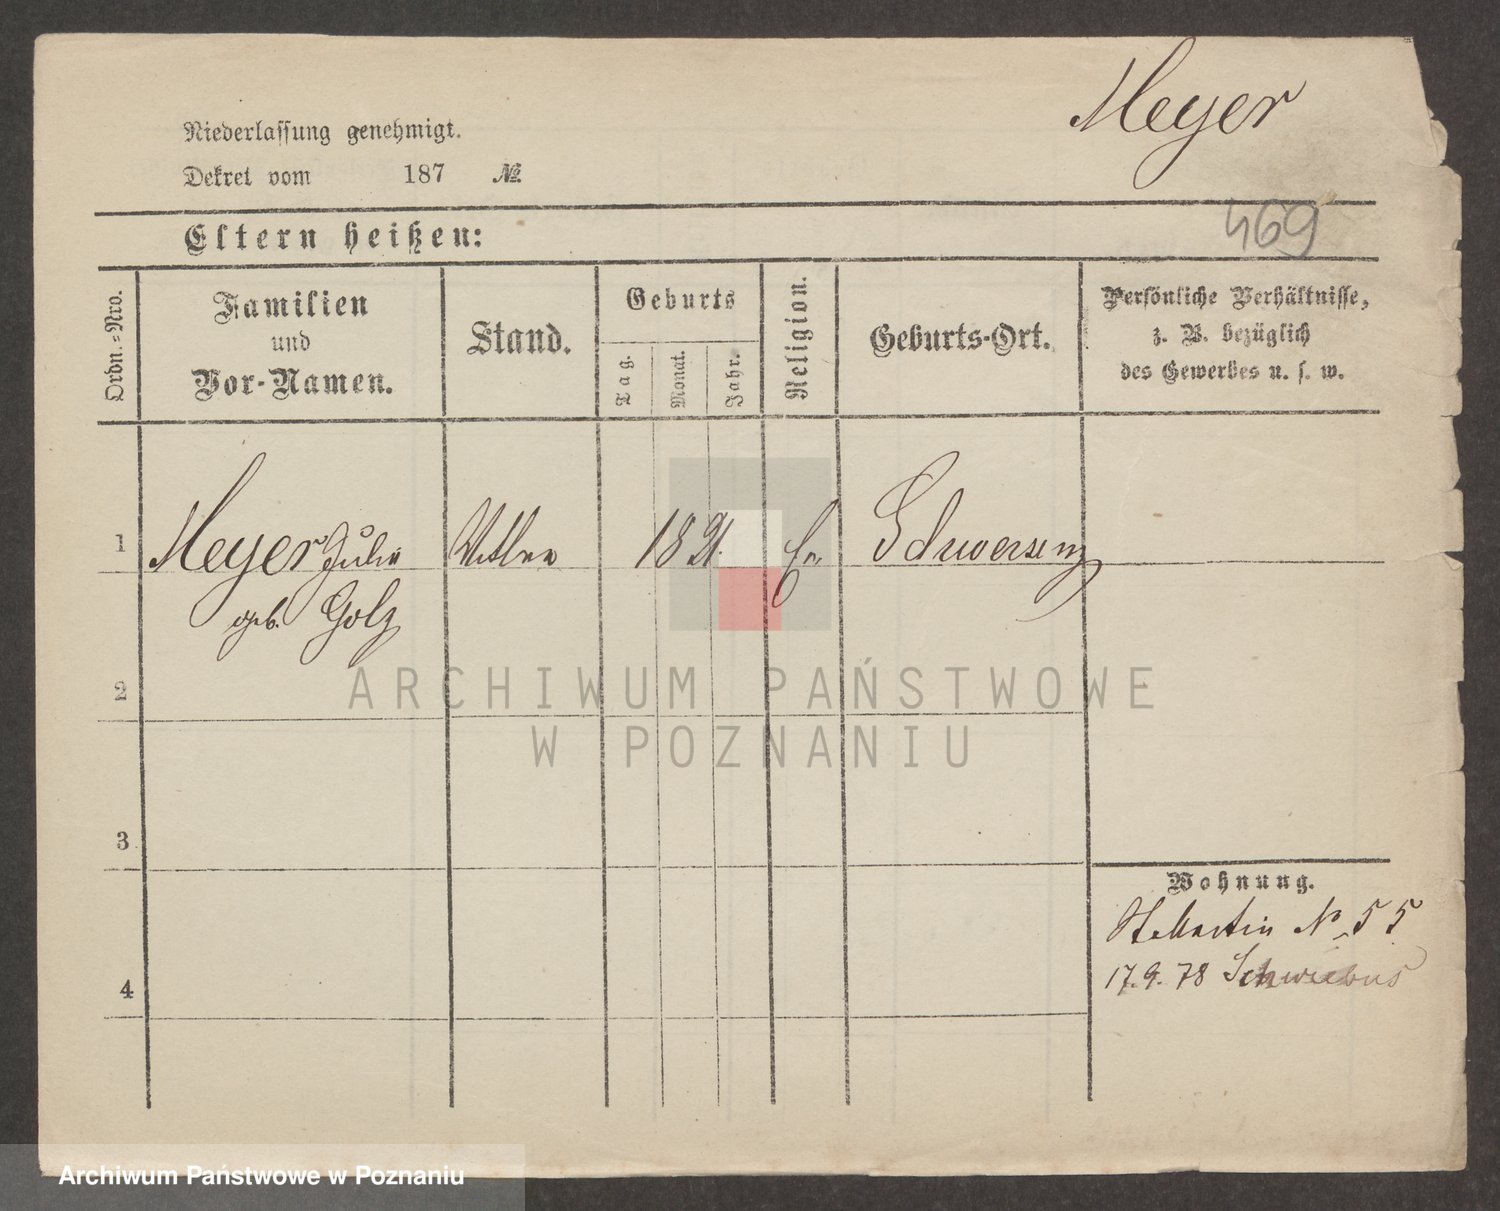 Meyer
Niederlassung genehmigt.
Dekret vom 187 №
469
Eltern heißen:
Ordn.-Nro.
Familien
und
Vor-Namen.
Stand.
Geburts
Tag.
Monat.
Jahr.
Religion.
Geburts-Ort.
Persönliche Verhältnisse,
z. B. bezüglich
des Gewerbes u. s. w.
1 Meyer Julie 1821. Schwersenz
geb. Golz
2
3
4
Wohnung.
St. Martin No 55
17.9.78 Schwiebus
ARCHIWUM PAŃSTWOWE
W POZNANIU
Archiwum Państwowe w Poznaniu